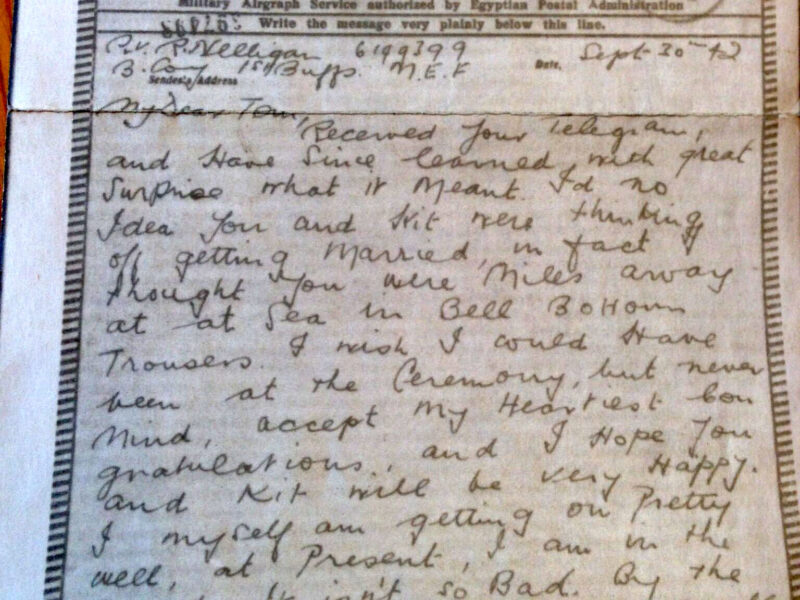 Military Airgraph Service authorised by Egyptian Postal Administration
Write the message very plainly below this line.
Pv. P. Nelligan 6199399
Date. Sept 30th 42
B. Coy 1st Buffs. M.E.F
Sender's Address
My Dear Tom,
Received Your Telegram,
and Have Since learned with great
Surprise what it Meant. I'd no
Idea You and Kit were thinking
off getting Married, in fact I
thought You were Miles away
at at Sea in Bell Bottom
Trousers. I wish I could Have
been at the Ceremony, but never
Mind, accept My Heartiest Con
gratulations, and I Hope You
and Kit will be very Happy.
I myself am getting on Pretty
well, at Present, I am in the
isn't so Bad. By the